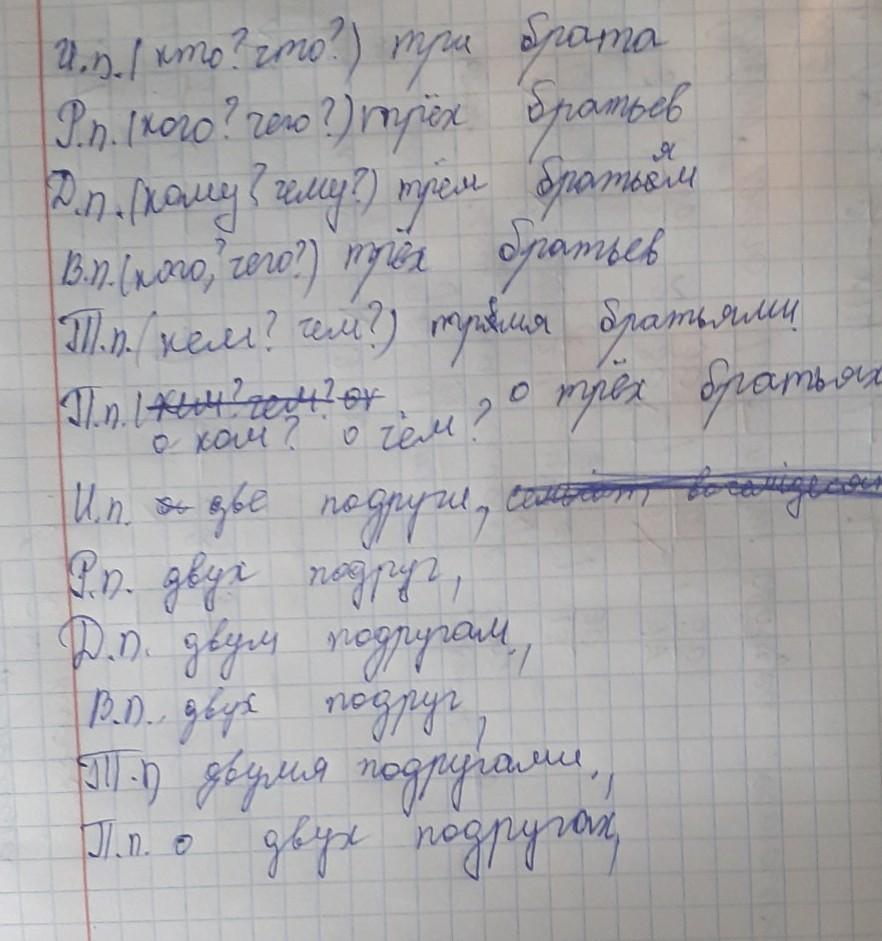 И.п. (кто? что?) три брата
Р.п. (кого? чего?) трёх братьев
Д.п. (кому? чему?) трём братьям
В.п. (кого, ? чего?) трёх братьев
Т.п. (кем? чем?) тремя братьями
П.п. (кем? чем? о трёх братьях
о ком? о чём?
И.п. две подруги,
Р.п. двух подруг,
Д.п. двум подругам,
В.п. двух подруг,
Т.п двумя подругами,
П.п. о двух подругах,